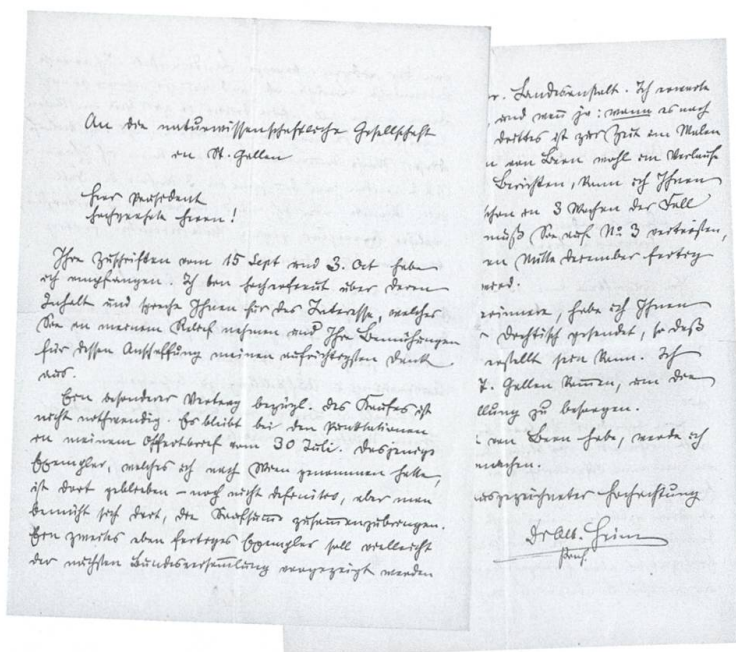 An die naturwissenschaftliche Gesellschaft
in St. Gallen
Herr Präsident
Hochgeehrte Herren!
Ihre Zuschriften vom 15 Sept und 3. Oct habe
ich empfangen. Ich bin hocherfreut über deren
Inhalt und spreche Ihnen für das Interesse, welches
Sie an meinem Relief nehmen und Ihre Bemühungen
für dessen Anschaffung meinen aufrichtigsten Dank
aus.
Ein besonderer Vertrag bezügl. des Kaufes ist
nicht nothwendig. Es bleibt bei den Punktationen
in meinem Offertbrief vom 30 Juli. Dasjenige
Exemplar, welches ich nach Wien genommen hatte,
ist dort geblieben – noch nicht definitiv, aber man
bemüht sich dort, die Kaufsumme zusammenzubringen.
Ein zweites eben fertiges Exemplar soll vielleicht
der nächsten Bundesversammlung vorgezeigt werden
Landesanstalt. Ich erwarte
und wenn ja: wann es nach
drittes ist zur Zeit am Malen
von Bern wohl im Verlaufe
Berichten, kann ich Ihnen
schon in 3 Wochen der Fall
muß Sie auf No. 3 vertrösten,
Mitte December fertig
wird.
erinnere, habe ich Ihnen
gesendet, so daß
erstellt sein kann. Ich
St. Gallen kommen, um die
zu besorgen.
von Bern habe, werde ich
machen.
ausgezeichneter Hochachtung
Dr Alb. Heim
Prof.